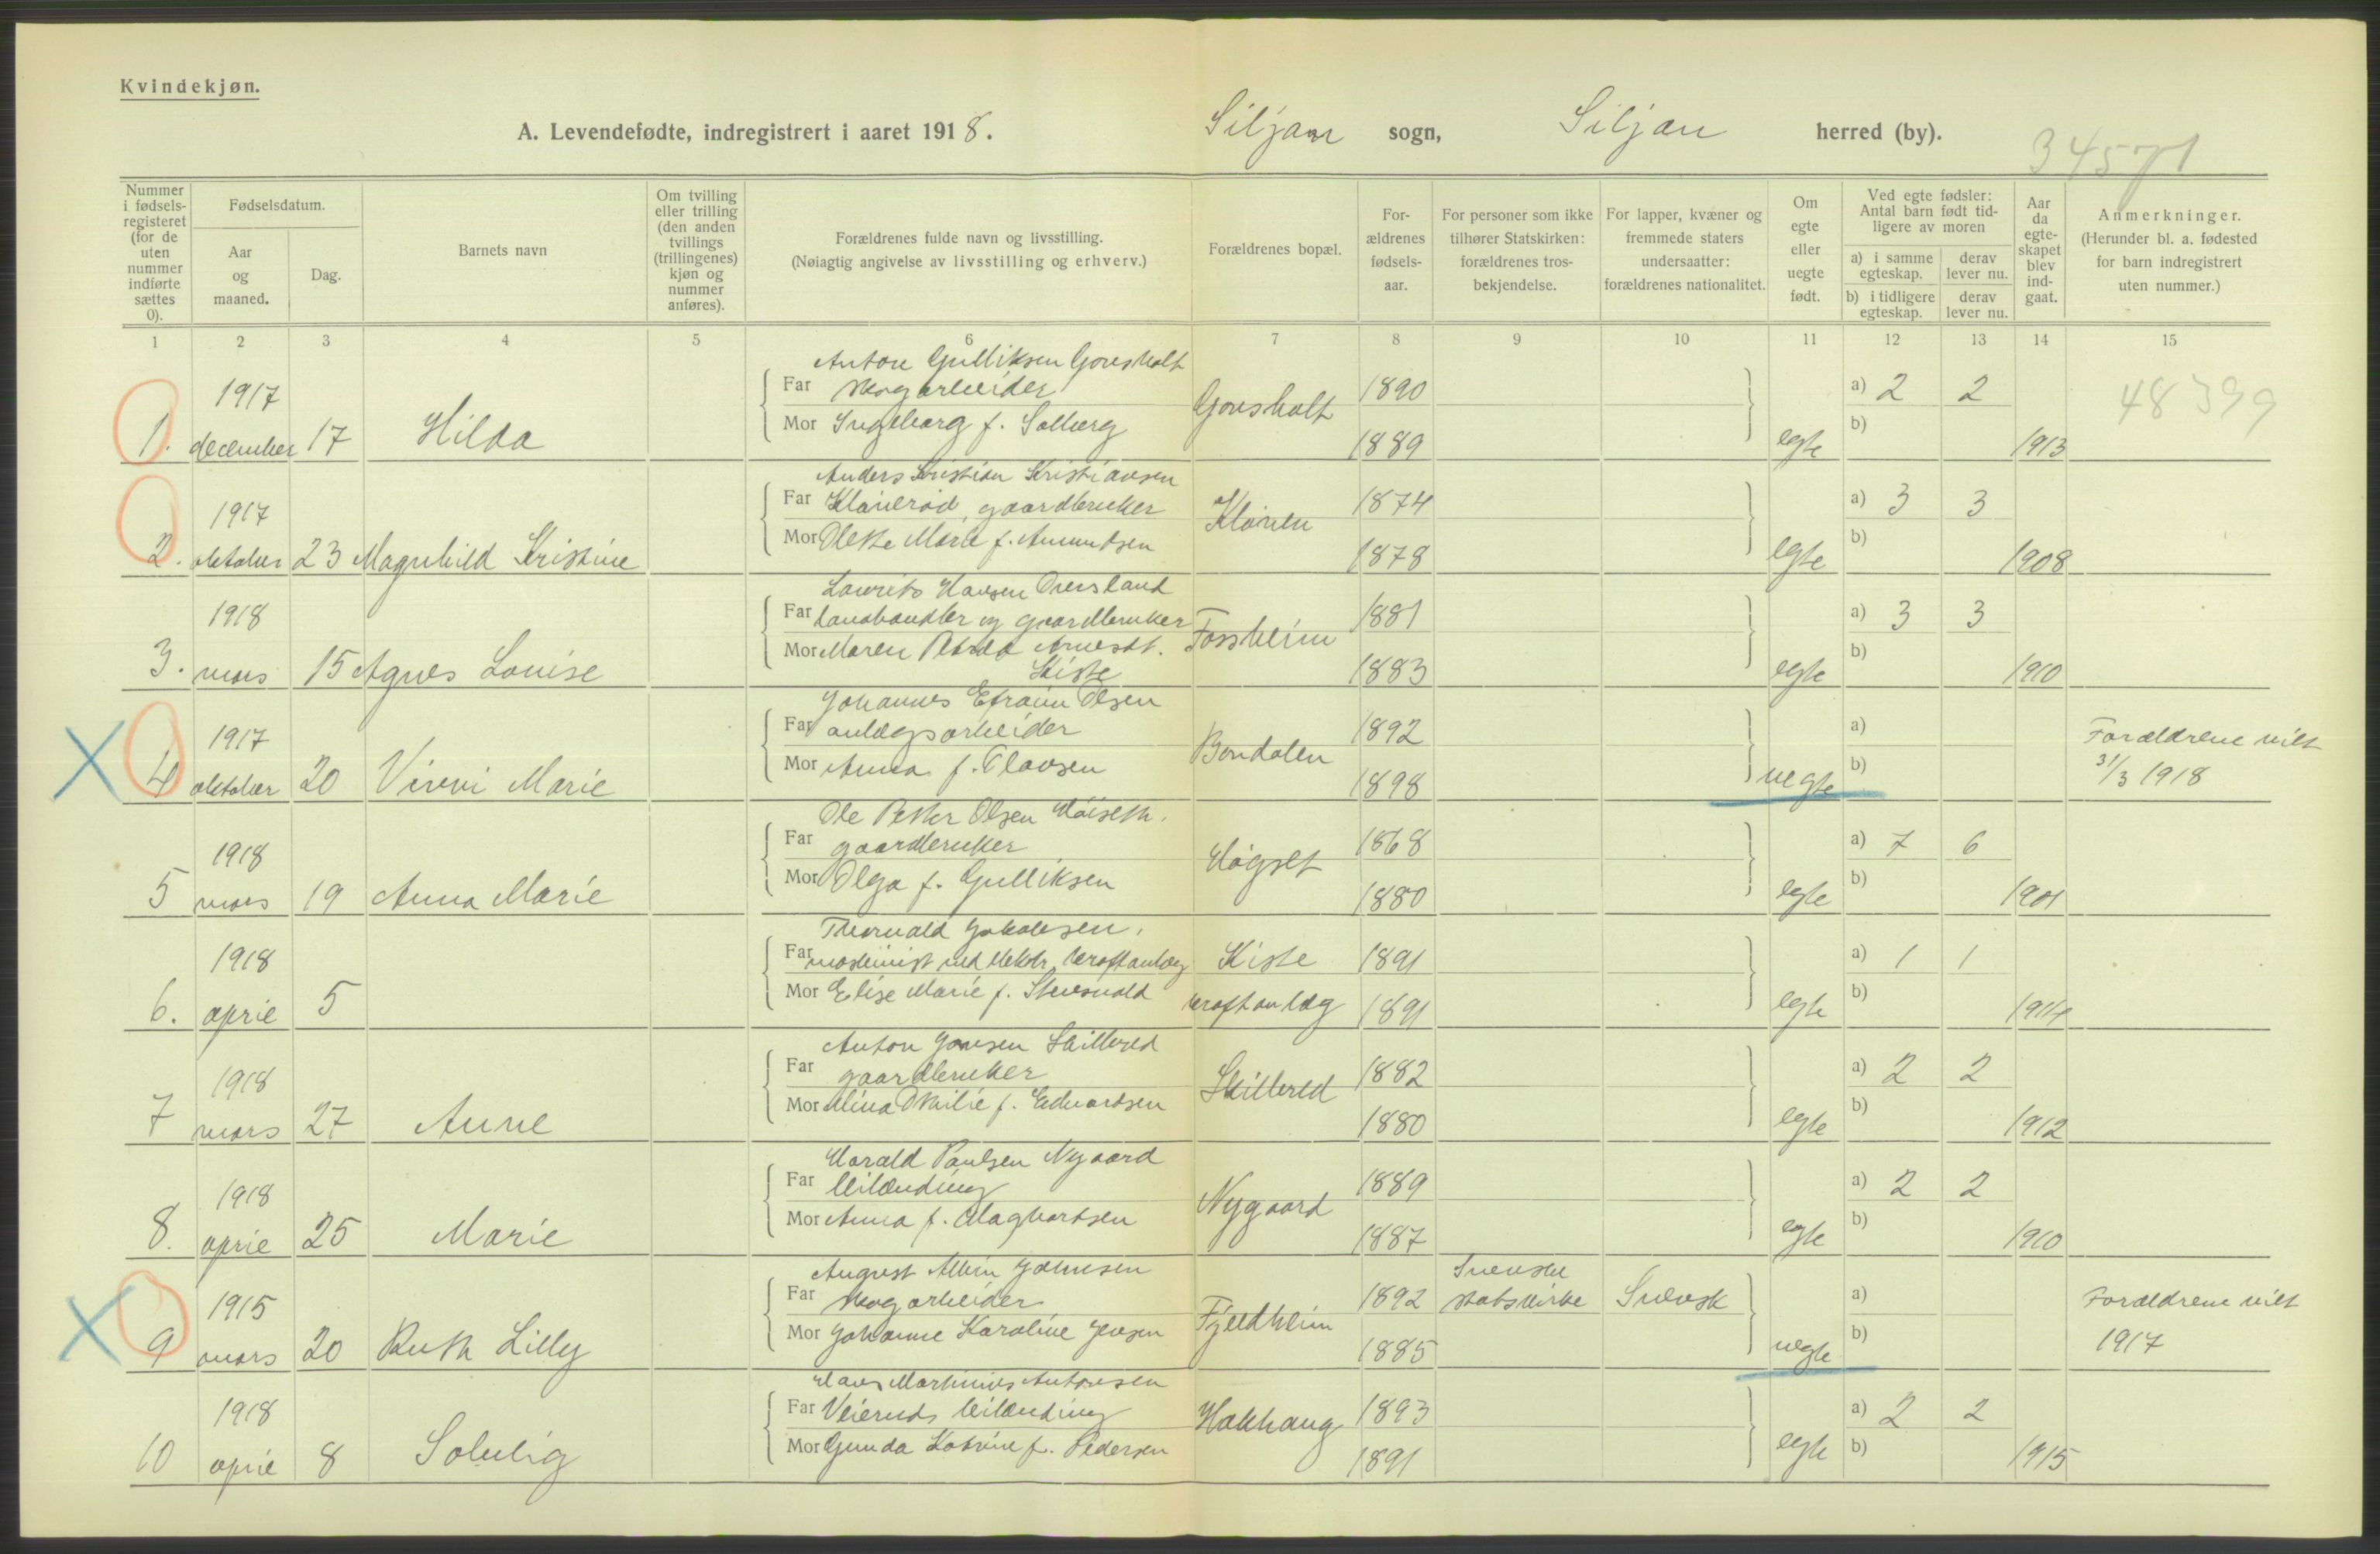 Kvindekjøn.
A. Levendefødte, indregistrert i aaret 1918. Siljan sogn, Siljan herred (by).
34571
Nummer i fødselsregisteret (for de uten nummer indførte sættes 0).
Fødselsdatum.
Aar og maaned.
Dag.
Barnets navn
Om tvilling eller trilling (den anden tvillings (trillingenes) kjøn og nummer anføres).
Forældrenes fulde navn og livsstilling.
(Nøiagtig angivelse av livsstilling og erhverv.)
Forældrenes bopæl.
For-ældrenes fødsels-aar.
For personer som ikke tilhører Statskirken: forældrenes tros-bekjendelse.
For lapper, kvæner og fremmede staters undersaatter: forældrenes nationalitet.
Om egte eller uegte født.
Ved egte fødsler: Antal barn født tid-ligere av moren
a) i samme egteskap. derav lever nu.
b) i tidligere egteskap. derav lever nu.
Aar da egte-skapet blev ind-gaat.
Anmerkninger.
(Herunder bl. a. fødested for barn indregistrert uten nummer.)
1 2 3 4 5 6 7 8 9 10 11 12 13 14 15
48399
Anton Gulliksen Goresholt
1917 Far skogarbeider 1890 a) 2 2
1. december 17 Hilda Mor Ingeborg f. Solberg Goresholt 1889 egte b) 1913
Anders Kristian Kristiansen
1917 Far Kløverød, gaardbruker 1874 a) 3 3
2. oktober 23 Magnhild Kristine Mor Olette Marie f. Amundsen Kløven 1878 egte b) 1908
Laurits Hansen Oversland
1918 Far landhandler og gaardbruker 1881 a) 3 3
3. mars 15 Agnes Louise Mor Maren Petrea Arnesdt. Kiste Fossheim 1883 egte b) 1910
Johannes Efraim Olsen
1917 Far anlægsarbeider 1892 a) Forældrene viet
4 oktober 20 Virvi Marie Mor Anna f. Olavsen Bondalen 1898 uegte b) 31/3 1918
Ole Petter Olsen Høiseth.
1918 Far gaardbruker 1868 a) 7 6
5 mars 19 Anna Marie Mor Olga f. Gulliksen Høgset 1880 egte b) 1901
Thorvald Jakobsen,
1918 Far maskinist ved elektr. kraftanlæg Kiste 1891 a) 1 1
6. april 5 Mor Elise Marie f. kraftanlæg 1891 egte b) 1914
Anton Jansen Skillered
1918 Far gaardbruker 1882 a) 2 2
7 mars 27 Anne Mor Mina Otilie f. Edvardsen Skillered 1880 egte b) 1912
Harald Paulsen Nygaard
1918 Far leilænding 1889 a) 2 2
8. april 25 Marie Mor Anna f. Maghartsen Nygaard 1887 egte b) 1910
August Albin Johnsen Svenske
1915 Far skogarbeider 1892 statskirke Svensk a) Forældrene viet
9 mars 20 Ruth Lilly Mor Johanne Karoline Jensen Fjeldheim 1885 uegte b) 1917
Hans Martinius Antonsen
1918 Far Veieruds leilænding 1893 a) 2 2
10 april 8 Solveig Mor Gunda Katrine f. Pedersen Hakhaug 1891 egte b) 1915